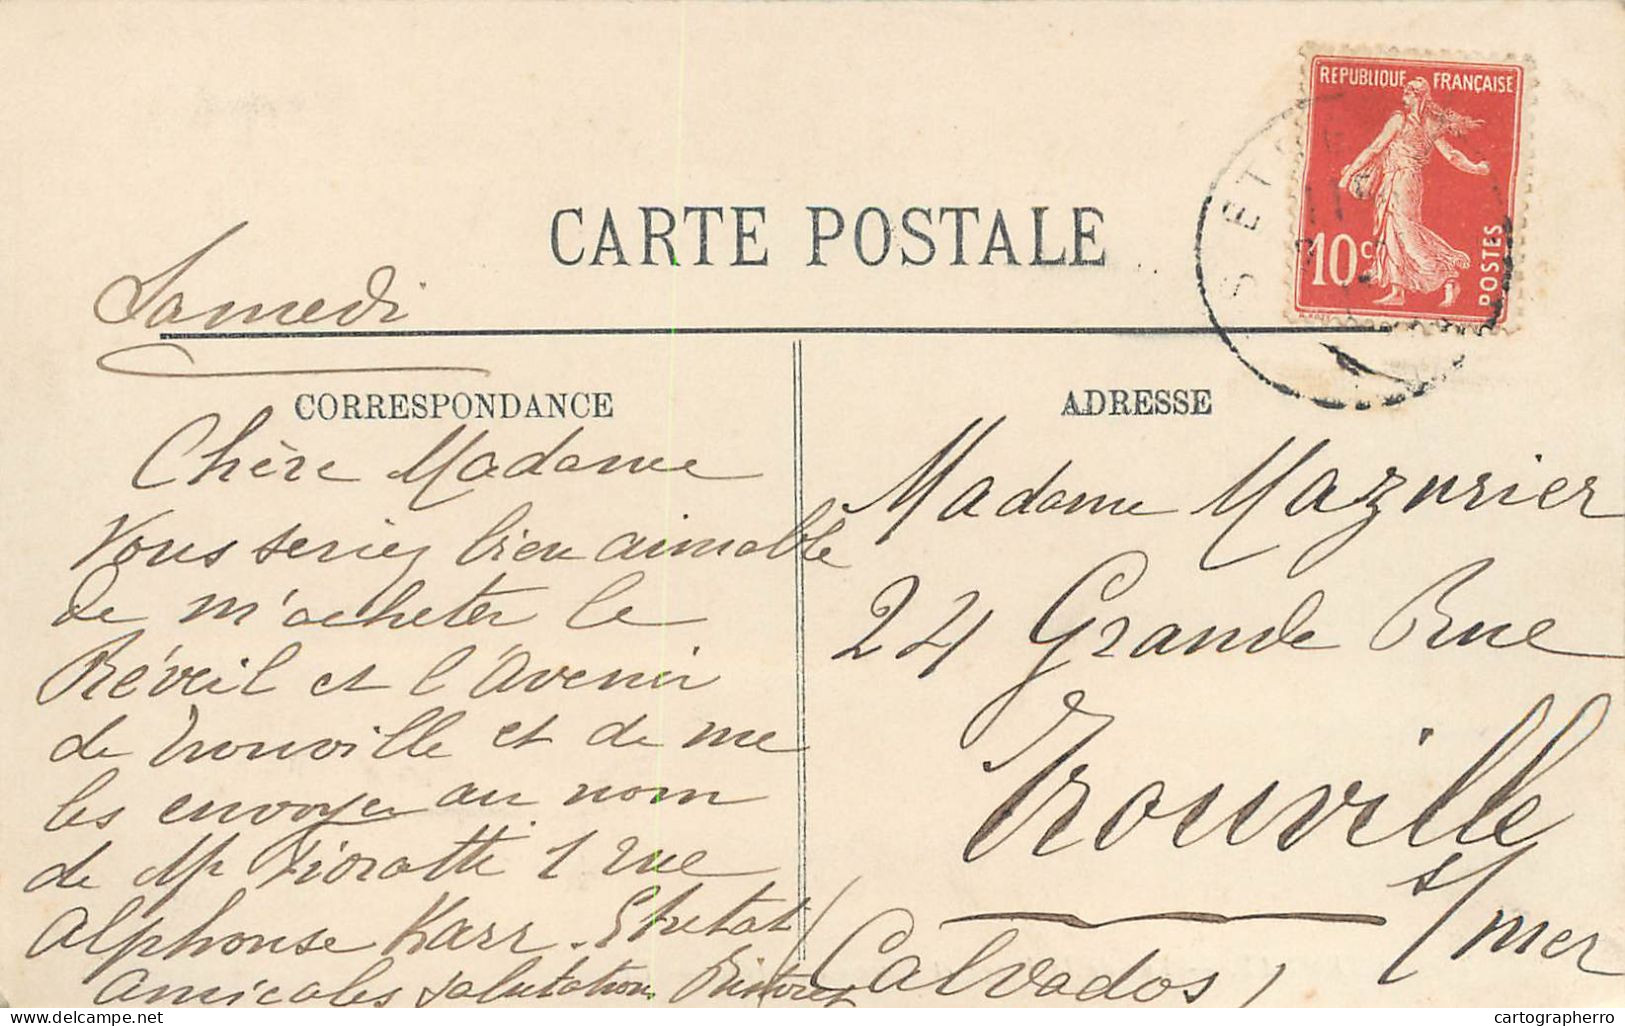 REPUBLIQUE FRANÇAISE
10 c
POSTES
ET
CARTE POSTALE
Samedi
CORRESPONDANCE
Chère Madame
Vous seriez bien aimable
de m'acheter le
Réveil et l'Avenir
de Trouville et de me
les envoyer au nom
de Mr Fioratti 1 rue
Alphonse Karr. Etretat
Amicales salutation
ADRESSE
Madame Mazurier
24 Grande Rue
Trouville
s/mer
Calvados
delcampe.net
cartographerro